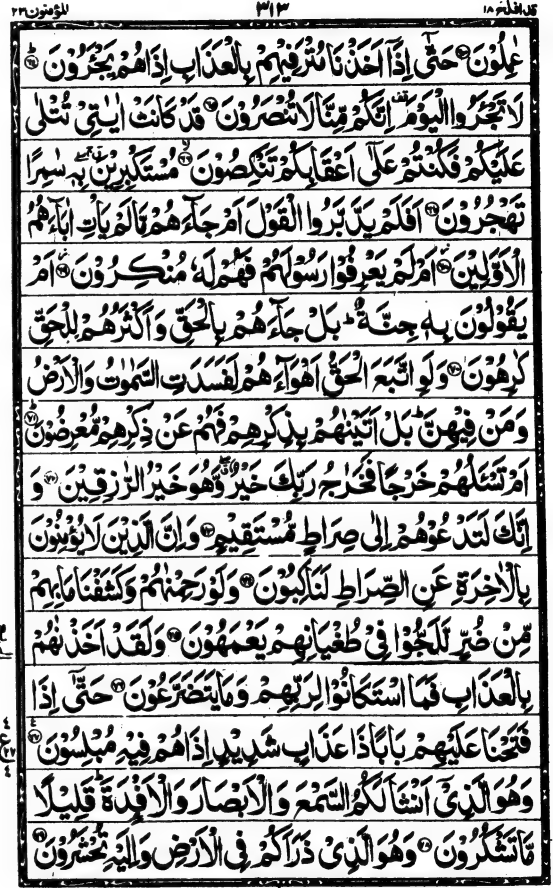 قد افلح ١٨ ٣١٣ المؤمنون ٢٣
عٰمِلُوْنَ ﴿٦٣﴾ حَتّٰۤى اِذَاۤ اَخَذْنَا مُتْرَفِيْهِمْ بِالْعَذَابِ اِذَا هُمْ يَجْـَٔرُوْنَ ﴿٦٤﴾ؕ
لَا تَجْـَٔرُوا الْيَوْمَ ۫ اِنَّكُمْ مِّنَّا لَا تُنْصَرُوْنَ ﴿٦٥﴾ قَدْ كَانَتْ اٰيٰتِيْ تُتْلٰى
عَلَيْكُمْ فَكُنْتُمْ عَلٰۤى اَعْقَابِكُمْ تَنْكِصُوْنَ ﴿٦٦﴾ۙ مُسْتَكْبِرِيْنَ ۖۗ بِهٖ سٰمِرًا
تَهْجُرُوْنَ ﴿٦٧﴾ اَفَلَمْ يَدَّبَّرُوا الْقَوْلَ اَمْ جَآءَهُمْ مَّا لَمْ يَاْتِ اٰبَآءَهُمُ
الْاَوَّلِيْنَ ﴿٦٨﴾ؗ اَمْ لَمْ يَعْرِفُوْا رَسُوْلَهُمْ فَهُمْ لَهٗ مُنْكِرُوْنَ ﴿٦٩﴾ؗ اَمْ
يَقُوْلُوْنَ بِهٖ جِنَّةٌ ؕ بَلْ جَآءَهُمْ بِالْحَقِّ وَاَكْثَرُهُمْ لِلْحَقِّ
كٰرِهُوْنَ ﴿٧٠﴾ وَلَوِ اتَّبَعَ الْحَقُّ اَهْوَآءَهُمْ لَفَسَدَتِ السَّمٰوٰتُ وَالْاَرْضُ
وَمَنْ فِيْهِنَّ ؕ بَلْ اَتَيْنٰهُمْ بِذِكْرِهِمْ فَهُمْ عَنْ ذِكْرِهِمْ مُّعْرِضُوْنَ ﴿٧١﴾ؕ
اَمْ تَسْـَٔلُهُمْ خَرْجًا فَخَرَاجُ رَبِّكَ خَيْرٌ ۖۗ وَّهُوَ خَيْرُ الرّٰزِقِيْنَ ﴿٧٢﴾ وَ
اِنَّكَ لَتَدْعُوْهُمْ اِلٰى صِرَاطٍ مُّسْتَقِيْمٍ ﴿٧٣﴾ وَاِنَّ الَّذِيْنَ لَا يُؤْمِنُوْنَ
بِالْاٰخِرَةِ عَنِ الصِّرَاطِ لَنٰكِبُوْنَ ﴿٧٤﴾ وَلَوْ رَحِمْنٰهُمْ وَكَشَفْنَا مَا بِهِمْ
مِّنْ ضُرٍّ لَّلَجُّوْا فِيْ طُغْيَانِهِمْ يَعْمَهُوْنَ ﴿٧٥﴾ وَلَقَدْ اَخَذْنٰهُمْ
بِالْعَذَابِ فَمَا اسْتَكَانُوْا لِرَبِّهِمْ وَمَا يَتَضَرَّعُوْنَ ﴿٧٦﴾ حَتّٰۤى اِذَا
فَتَحْنَا عَلَيْهِمْ بَابًا ذَا عَذَابٍ شَدِيْدٍ اِذَا هُمْ فِيْهِ مُبْلِسُوْنَ ﴿٧٧﴾
وَهُوَ الَّذِيْۤ اَنْشَاَ لَكُمُ السَّمْعَ وَالْاَبْصَارَ وَالْاَفْـِٕدَةَ ؕ قَلِيْلًا
مَّا تَشْكُرُوْنَ ﴿٧٨﴾ وَهُوَ الَّذِيْ ذَرَاَكُمْ فِي الْاَرْضِ وَاِلَيْهِ تُحْشَرُوْنَ ﴿٧٩﴾
٤
ع
٢٧
٤